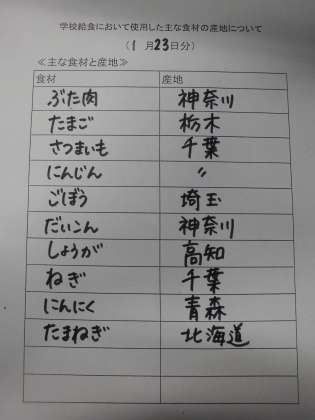 学校給食において使用した主な食材の産地について
(1月23日分)
≪主な食材と産地≫
食材 産地
ぶた肉 神奈川
たまご 栃木
さつまいも 千葉
にんじん 〃
ごぼう 埼玉
だいこん 神奈川
しょうが 高知
ねぎ 千葉
にんにく 青森
たまねぎ 北海道